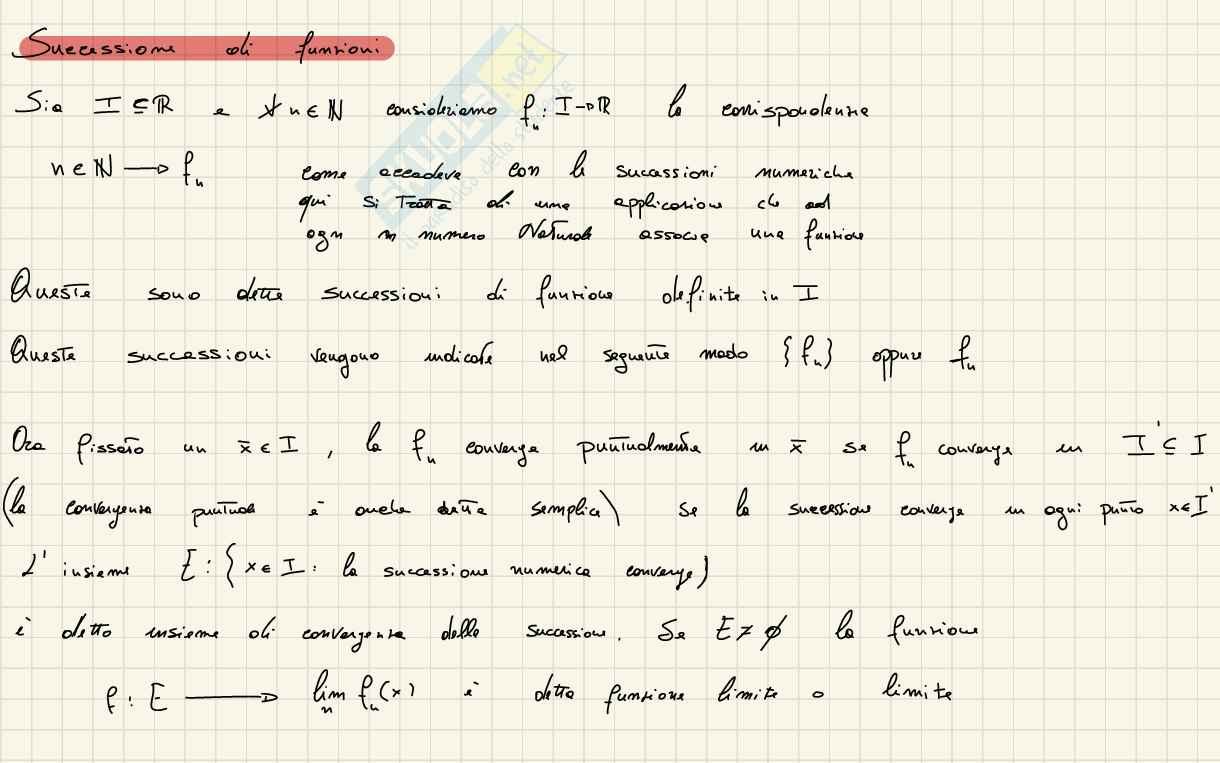 Successione di funzioni
Sia I ⊆ ℝ e ∀ n ∈ ℕ consideriamo fₙ: I → ℝ la corrispondenza
n ∈ ℕ → fₙ come accadeva con le successioni numeriche
qui si tratta di una applicazione che ad
ogni numero Naturale associa una funzione
Queste sono dette successioni di funzione definite in I
Queste successioni vengono indicate nel seguente modo {fₙ} oppure fₙ
Ora fissato un x̄ ∈ I, la fₙ converge puntualmente in x̄ se fₙ converge in I' ⊆ I
(la convergenza puntuale è anche detta semplice) se la successione converge in ogni punto x ∈ I'
L'insieme E: {x ∈ I: la successione numerica converge}
è detto insieme di convergenza della successione. Se E ≠ ∅ la funzione
f: E → lim fₙ(x) è detta funzione limite o limite
n
SKUOLA.net
il paradiso dello studente